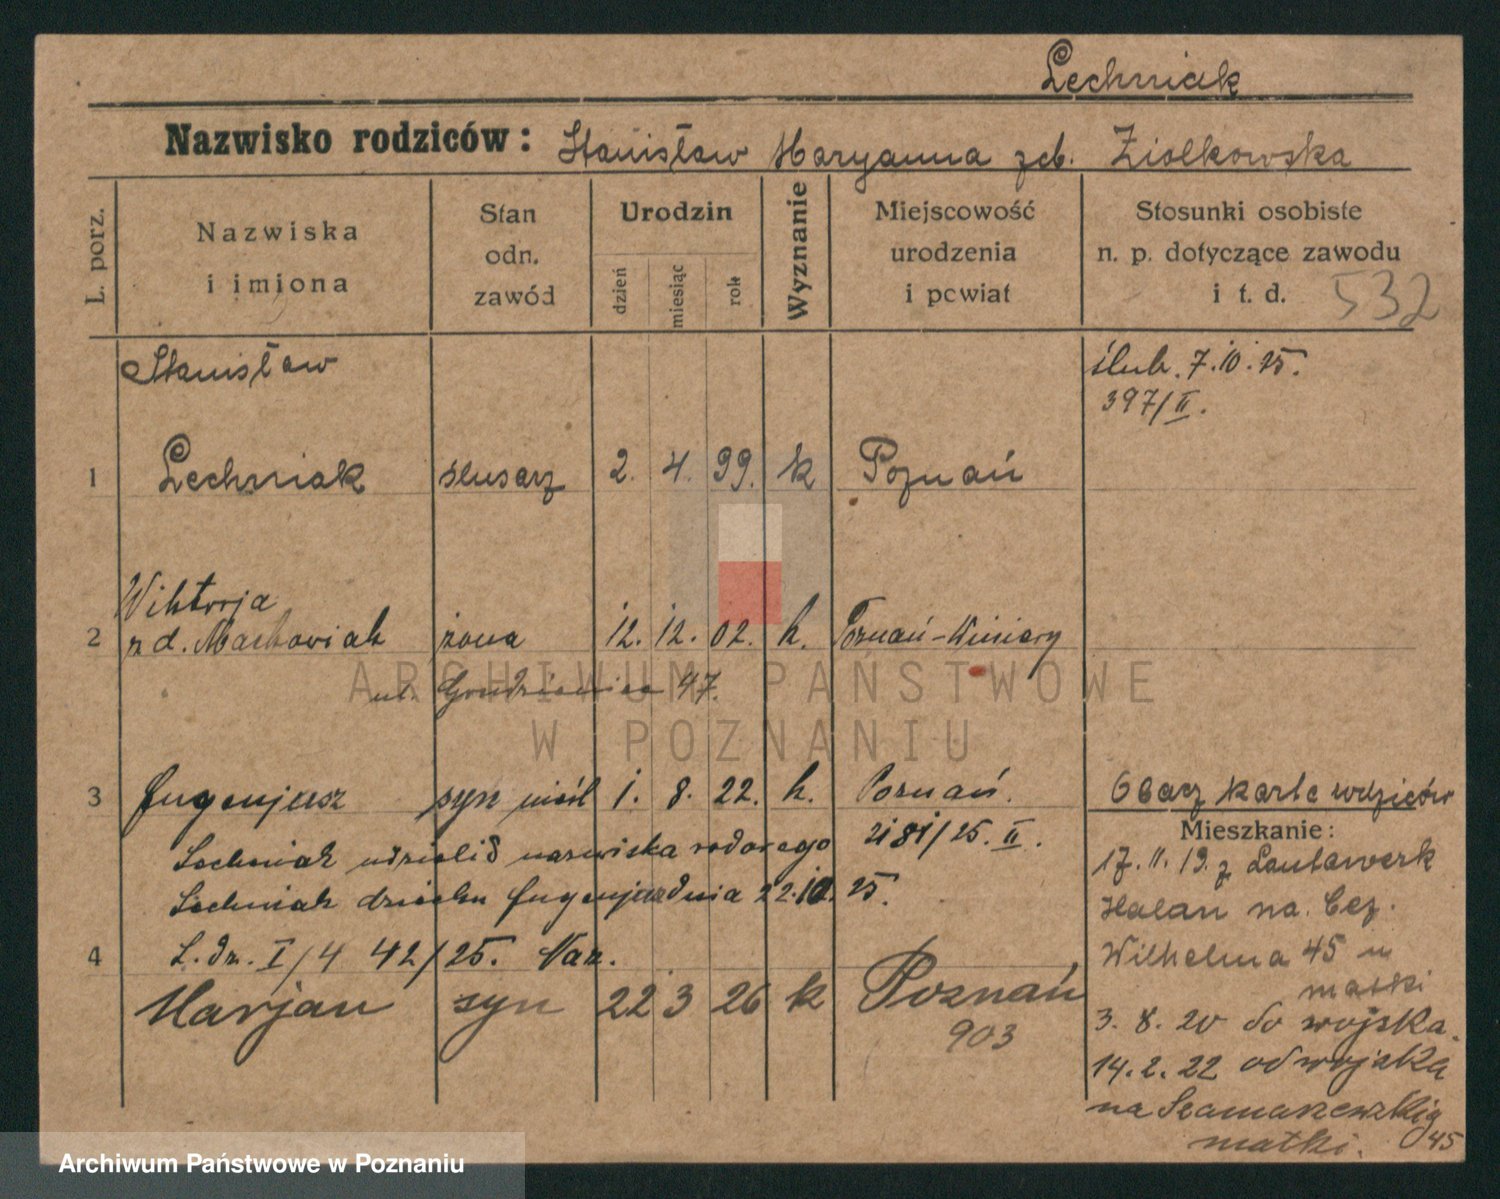 Lechniak
Nazwisko rodziców: Stanisław Maryanna Ziolkowska
L. porz.
Nazwiska
i imiona
Stan
odn.
zawód
Urodzin
dzień
miesiąc
rok
Wyznanie
Miejscowość
urodzenia
i powiat
Stosunki osobiste
n. p. dotyczące zawodu
i t. d.
532
Stanisław
ślub. 7.10.25.
397/II.
1 Lechniak ślusarz 2. 4. 99. k Poznań
Wiktorja
2 z d. Markowiak żona 12. 12. 02. k. Poznań-Winiary
ul. 47.
3 Eugenjusz syn nieśl 1. 8. 22. k. Poznań.
Obacz karte rodziców
Lechniak udzielił nazwiska rodowego 2181/25. II.
Mieszkanie:
Lechniak dziecku Eugenjusz dnia 22.10.25.
17. 11. 19. z Lautawerk
Halan na. Ces.
4 L. dz. I/4 42/25. Naz.
Wilhelma 45 m
matki
Marjan syn 22 3 26 k Poznań
903
3. 8. 20 do wojska.
14. 2. 22 od wojska
na Szamarzewskieg
45
matki.
ARCHIWUM PAŃSTWOWE
W POZNANIU
Archiwum Państwowe w Poznaniu